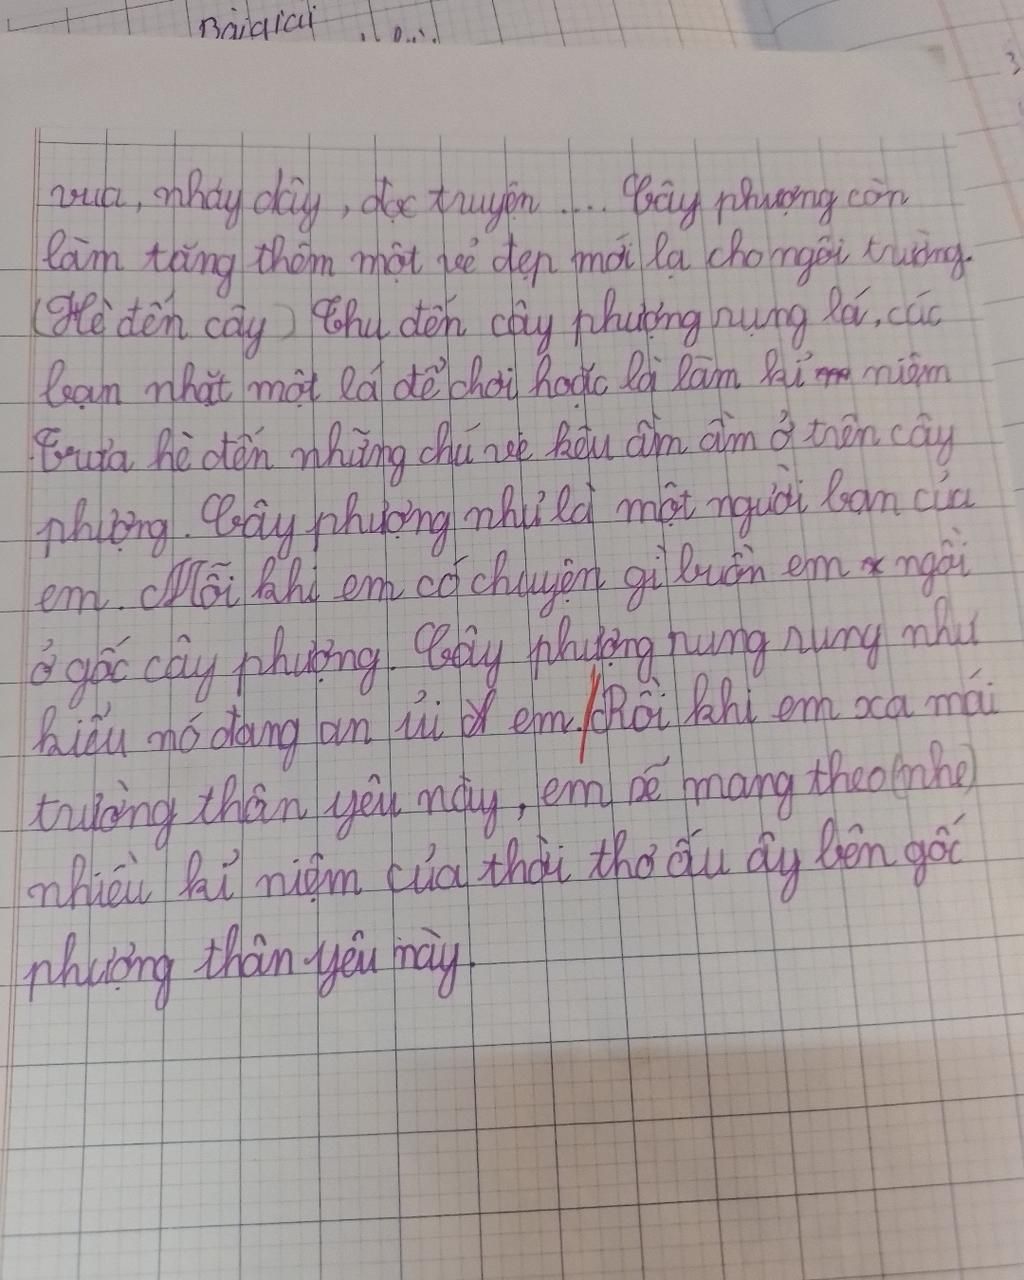 Bài giải
vua, nhảy dây, đọc truyện .... Cây phượng còn
làm tăng thêm một vẻ đẹp mới lạ cho ngôi trường.
(Hè đến cây) Thu đến cây phượng rụng lá, các
bạn nhặt một lá để chơi hoặc là làm kỉ niệm
Trưa hè đến những chú ve kêu ầm ầm ở trên cây
phượng. Cây phượng như là một người bạn của
em. Mỗi khi em có chuyện gì buồn em x ngồi
ở gốc cây phượng. Cây phượng rung rung như
hiểu nó đang an ủi em. Rồi khi em xa mái
trường thân yêu này, em sẽ mang theo (nhe)
nhiều kỉ niệm của thời thơ ấu ấy bên gốc
phượng thân yêu này.